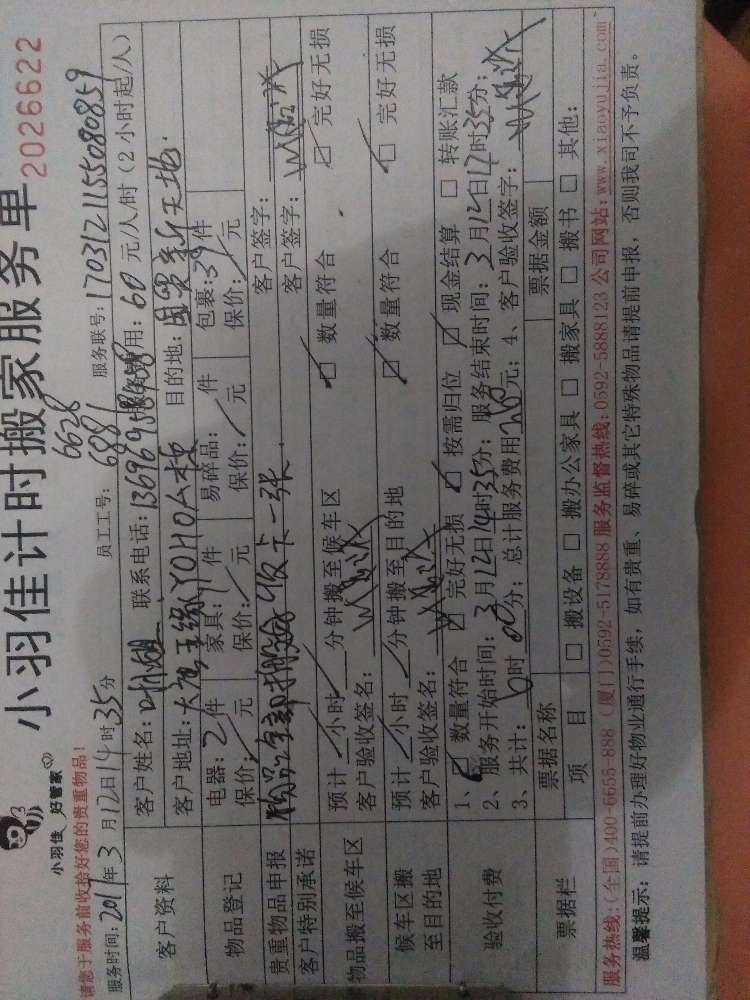 小羽佳计时搬家服务单
2026622
小羽佳 好管家
请您于服务前收拾好您的贵重物品!
6628
服务时间:2017年3月12日14时35分 员工工号:6881 服务联号:1703121155080859
客户资料
客户姓名: 联系电话:13696958358 服务费用:60元/人/时(2小时起/人)
客户地址: YOHO 目的地:
物品登记
电器:2件 家具: 件 易碎品: 件 包裹:39件
保价: 元 保价: 元 保价: 元 保价: 元
贵重物品申报 客户签字:
客户特别承诺 客户签字:
物品搬至候车区
预计 小时 分钟搬至候车区 数量符合 完好无损
客户验收签名:
候车区搬至目的地
预计 小时 分钟搬至目的地 数量符合 完好无损
客户验收签名:
验收付费
1、 数量符合 完好无损 按需归位 现金结算 转账汇款
2、服务开始时间:3月12日14时35分;服务结束时间:3月12日17时35分;
3、共计:6时00分;总计服务费用 元;4、客户验收签字:
票据栏
票据名称 票据金额
项目 搬设备 搬办公家具 搬家具 搬书 其他:
服务热线:(全国)400-6655-888 (厦门)0592-5178888 服务监督热线:0592-5888123 公司网站:www.xiaoyujia.com
温馨提示:请提前办理好物业通行手续,如有贵重、易碎或其它特殊物品请提前申报,否则我司不予负责。